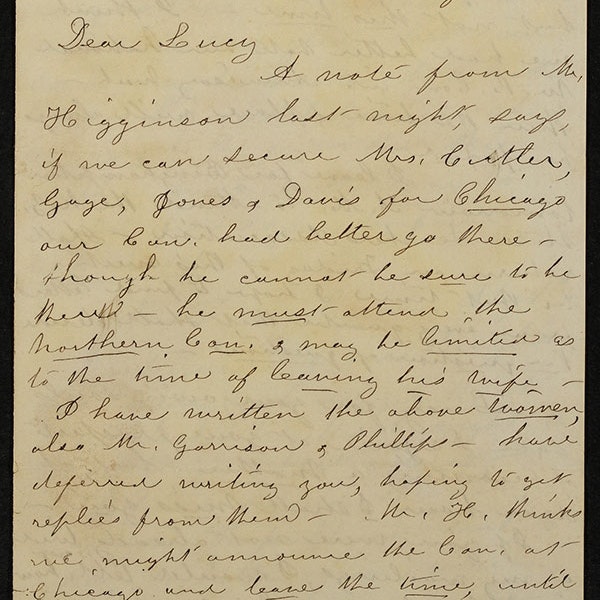 Dear Lucy
A note from Mr.
Higginson last night, says,
if we can secure Mrs. Cutler,
Gage, Jones & Davis for Chicago
our Con. had better go there –
though he cannot be sure to be
there – he must attend the
Northern Con. & may be limited as
to the time of leaving his wife –
I have written the above women,
also Mr. Garrison & Phillips – have
deferred writing you, hoping to get
replies from them – Mr. H. thinks
we might announce the Con. at
Chicago and leave the time, until